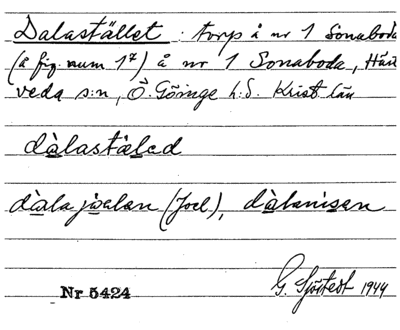 Dalastället : torp å nr 1 Sonaboda
(å fig. num 1⁷) å nr 1 Sonaboda, Här
veda s:n, Ö. Göinge h:d. Krist. län
dàlastäled
dàla jωalen (Joel), dàlanisen
G. Sjöstedt 1944
Nr 5424